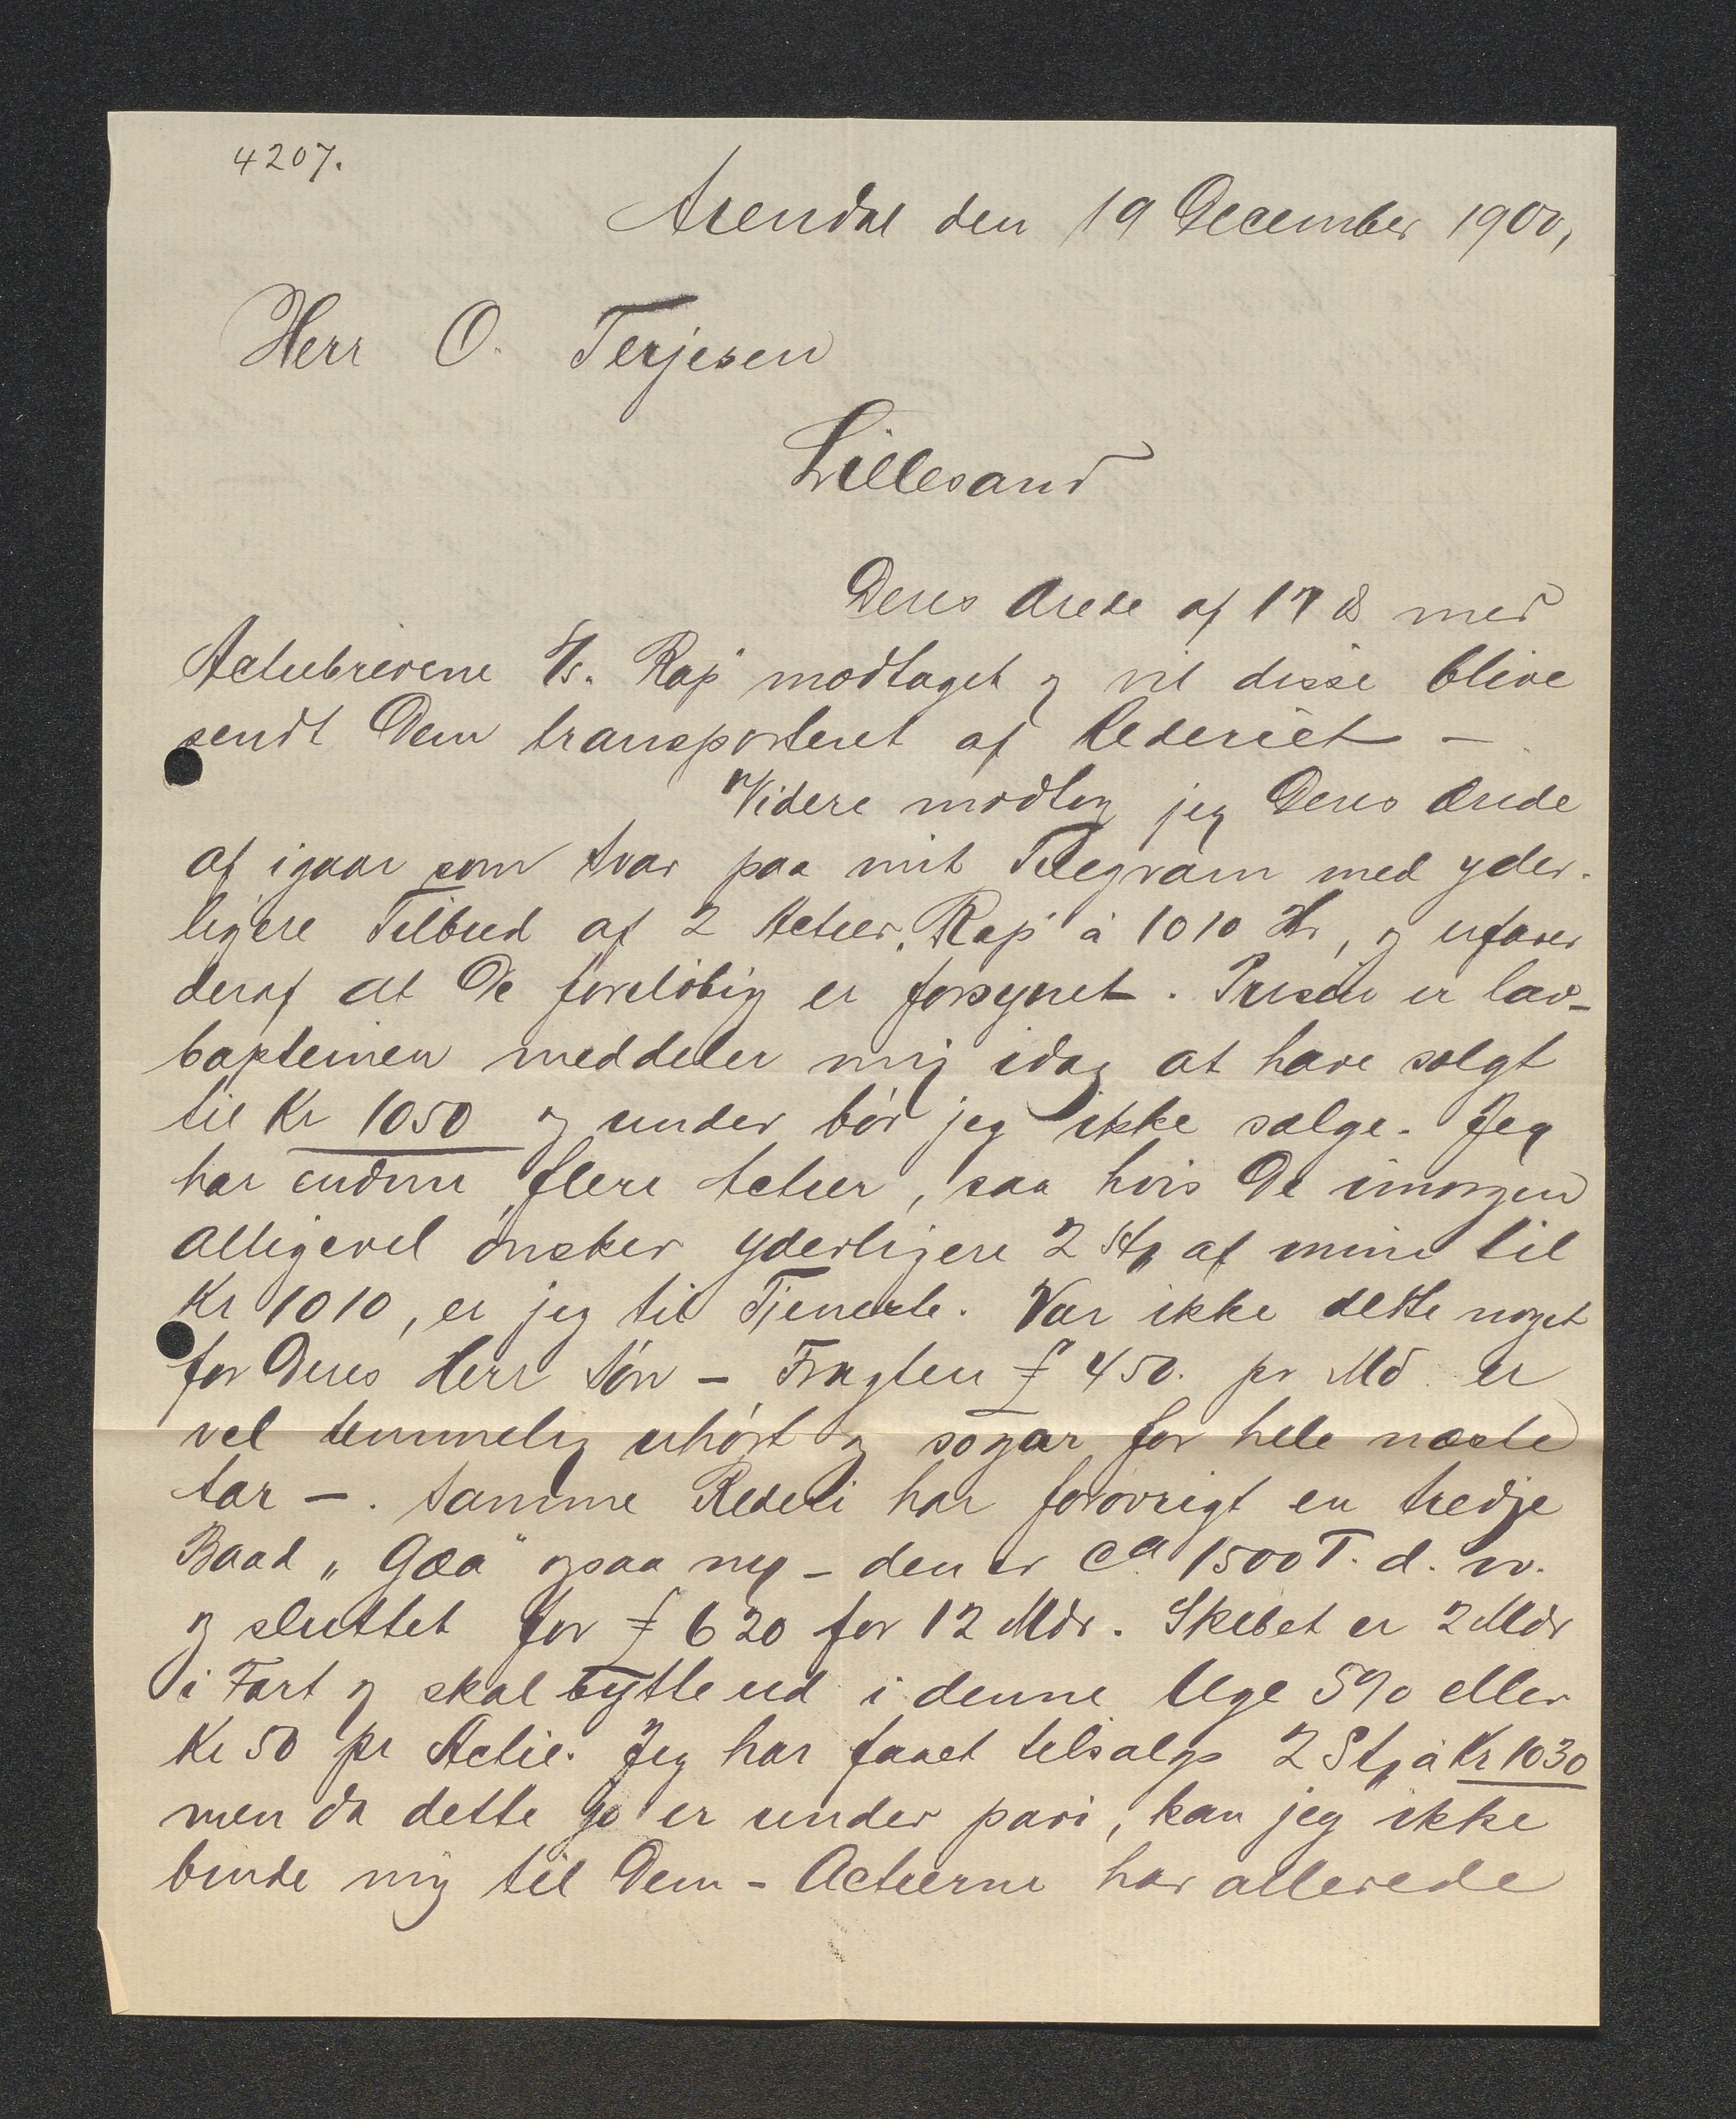 4207.
Arendal den 19 December 1900,
Herr O. Terjesen
Lillesand
Deres Ærede af 17 ds med
Actiebrevene S/s. "Rap" modtaget og vil disse blive
sendt Dem transporteret af Rederiet —
Videre modtog jeg Deres Ærede
af igaar som Svar paa mit Telegram med yder-
ligere Tilbud af 2 Actier "Rap" à 1010 Kr, og erfarer
deraf at De foreløbig er forsynet. Prisen er lav –
Kapteinen meddeler mig idag at have solgt
til Kr 1050 og under bør jeg ikke sælge. Jeg
har endnu flere Actier, saa hvis De imorgen
alligevel ønsker yderligere 2 Stk af mine til
Kr 1010, er jeg til Tjeneste. Var ikke dette noget
for Deres Herr Søn – Fragten £ 450. pr Md er
vel temmelig uhørt og sogar for hele næste
Aar —. Samme Rederi har forøvrigt en tredje
Baad „Gæa" ogsaa ny – den er Ca 1500 T. d. w.
og sluttet for £ 620 for 12 Mdr. Skibet er 2 Mdr
i Fart og skal bytte ud i denne Uge 5% eller
Kr 50 pr Actie. Jeg har faaet tilsalgs 2 Stk à Kr 1030
men da dette jo er under pari, kan jeg ikke
binde mig til Dem – Actierne har allerede